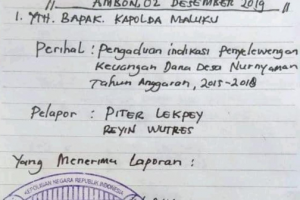 AMBON, 02 DESEMBER 2019
1. YTH. BAPAK. KAPOLDA MALUKU
Perihal : Pengaduan indikasi Penyelewengan
Keuangan Dana Desa Nurnyaman
Tahun Anggaran, 2015-2018
Pelapor : PITER LEKPEY
REYIN WUTRES
Yang Menerima Laporan :
KEPOLISIAN NEGARA REPUBLIK INDONESIA